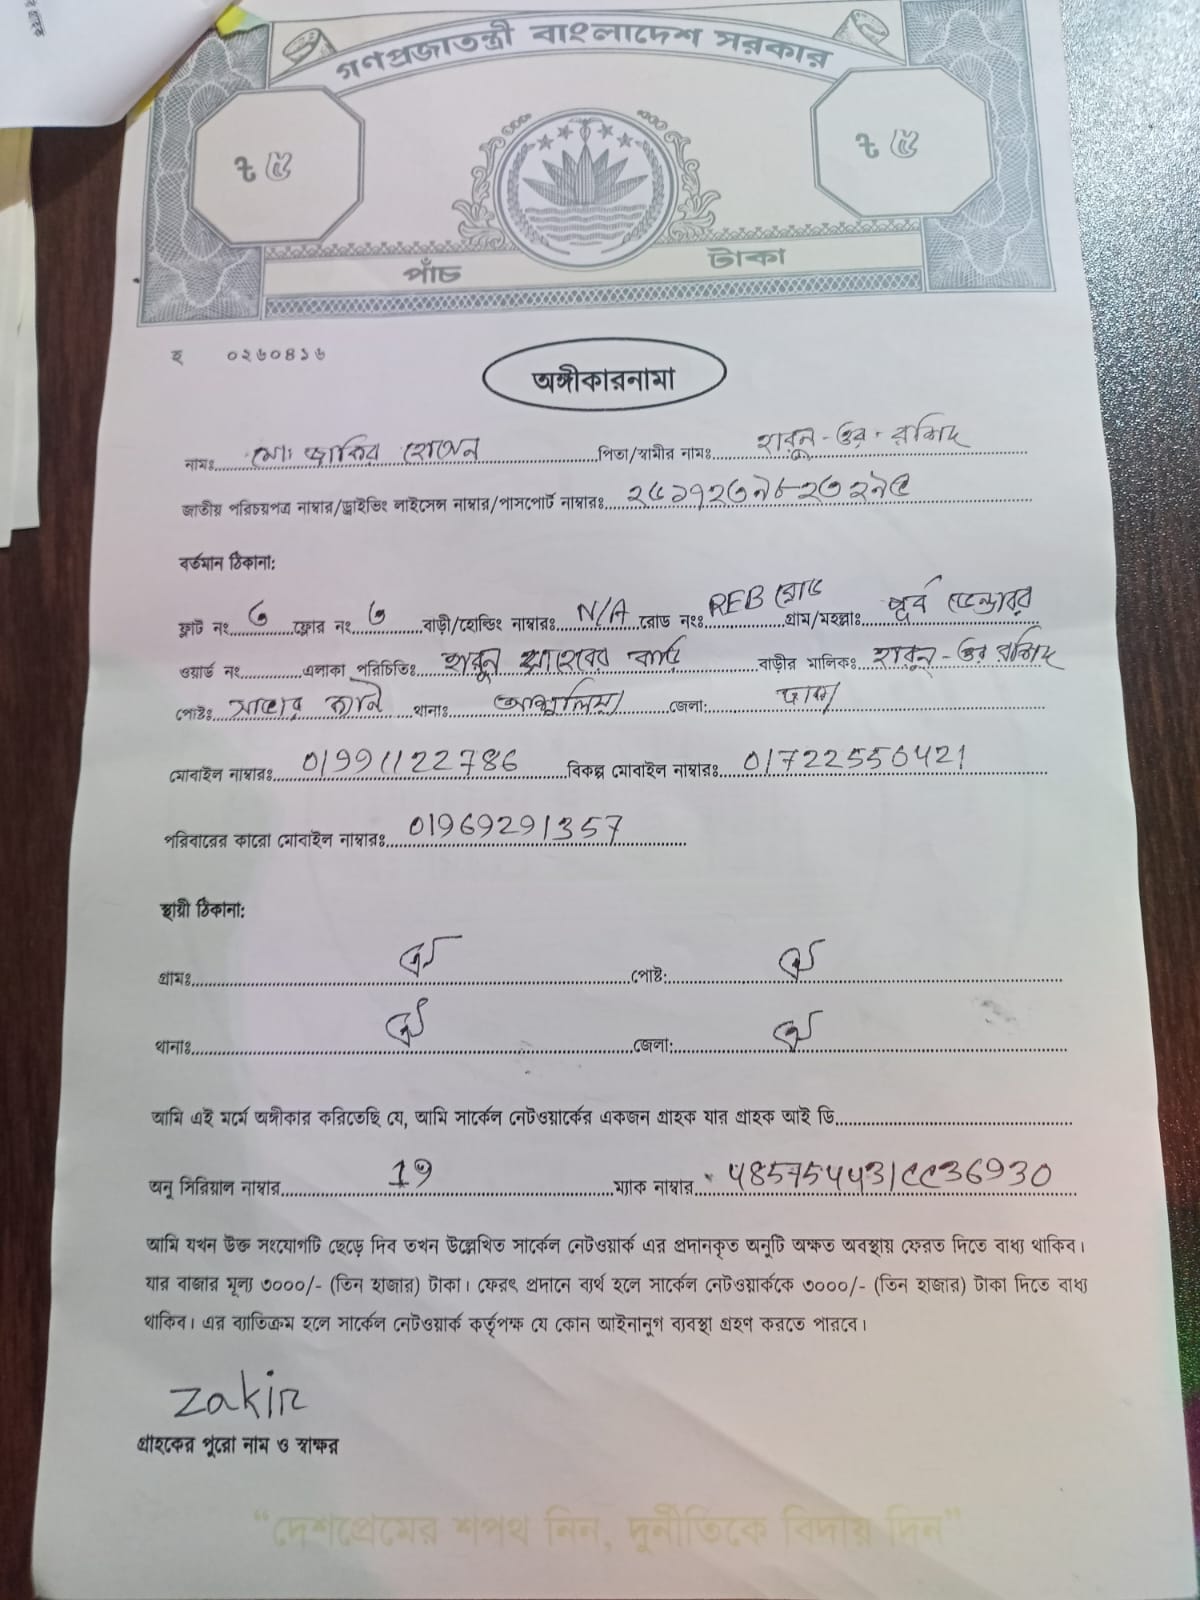 গণপ্রজাতন্ত্রী বাংলাদেশ সরকার
৳ ৫ ৳ ৫
পাঁচ টাকা
হ ০২৬০৪১৬
অঙ্গীকারনামা
নামঃ মোঃ জাকির হোসেন পিতা/স্বামীর নামঃ হারুন-ওর-রশিদ
জাতীয় পরিচয়পত্র নাম্বার/ড্রাইভিং লাইসেন্স নাম্বার/পাসপোর্ট নাম্বারঃ
বর্তমান ঠিকানা:
ফ্লাট নং ৩ ফ্লোর নং ৩ বাড়ী/হোল্ডিং নাম্বারঃ N/A রোড নংঃ REB রোড গ্রাম/মহল্লাঃ পূর্ব
ওয়ার্ড নং এলাকা পরিচিতিঃ হারুন সাহেবের বাড়ি বাড়ীর মালিকঃ হারুন-ওর রশিদ
পোষ্টঃ থানাঃ আশুলিয়া জেলা: ঢাকা
মোবাইল নাম্বারঃ 01991122786 বিকল্প মোবাইল নাম্বারঃ 01722550421
পরিবারের কারো মোবাইল নাম্বারঃ 01969291357
স্থায়ী ঠিকানা:
গ্রামঃ ঐ পোষ্ট: ঐ
থানাঃ ঐ জেলা: ঐ
আমি এই মর্মে অঙ্গীকার করিতেছি যে, আমি সার্কেল নেটওয়ার্কের একজন গ্রাহক যার গ্রাহক আই ডি
অনু সিরিয়াল নাম্বার 19 ম্যাক নাম্বার 485754431CC36930
আমি যখন উক্ত সংযোগটি ছেড়ে দিব তখন উল্লেখিত সার্কেল নেটওয়ার্ক এর প্রদানকৃত অনুটি অক্ষত অবস্থায় ফেরত দিতে বাধ্য থাকিব।
যার বাজার মূল্য ৩০০০/- (তিন হাজার) টাকা। ফেরৎ প্রদানে ব্যর্থ হলে সার্কেল নেটওয়ার্ককে ৩০০০/- (তিন হাজার) টাকা দিতে বাধ্য
থাকিব। এর ব্যাতিক্রম হলে সার্কেল নেটওয়ার্ক কর্তৃপক্ষ যে কোন আইনানুগ ব্যবস্থা গ্রহণ করতে পারবে।
zakir
গ্রাহকের পুরো নাম ও স্বাক্ষর
"দেশপ্রেমের শপথ নিন, দুর্নীতিকে বিদায় দিন"